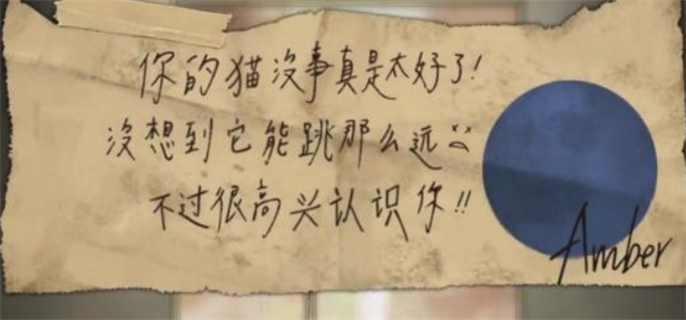 你的猫没事真是太好了!
没想到它能跳那么远
不过很高兴认识你!!
Amber